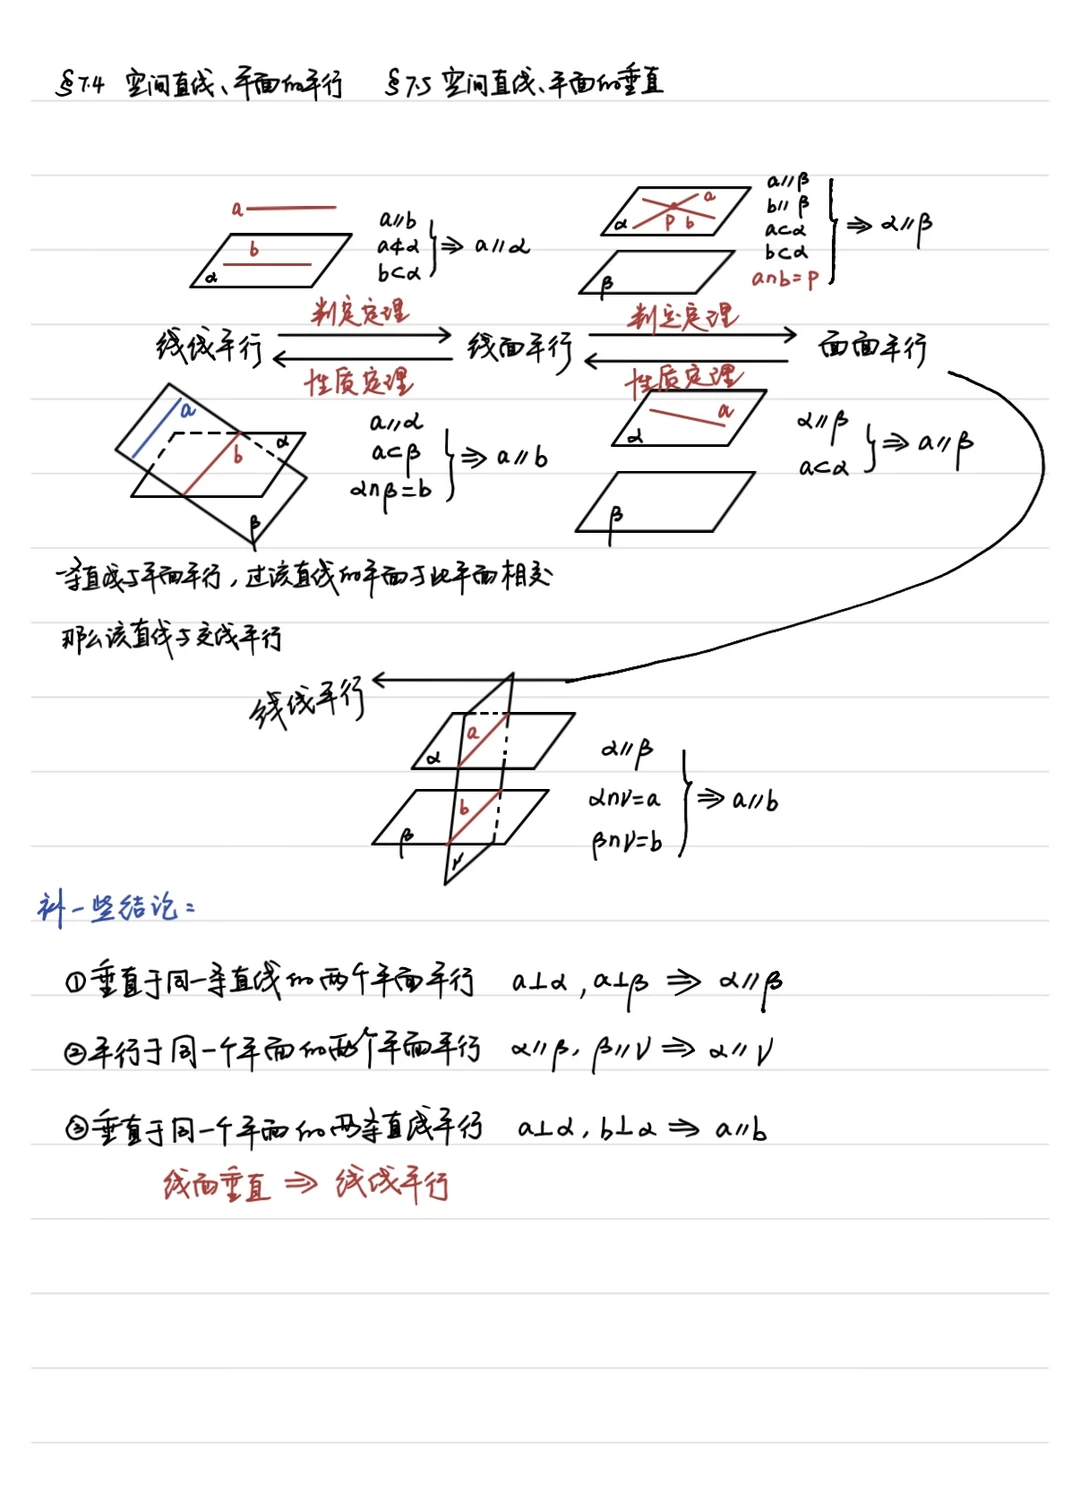 §7.4 空间直线、平面的平行 §7.5 空间直线、平面的垂直
a
b
α
a∥b
a⊄α
b⊂α
⇒ a∥α
a
α P b
β
a∥β
b∥β
a⊂α
b⊂α
a∩b=P
⇒ α∥β
判定定理 判定定理
线线平行 线面平行 面面平行
性质定理 性质定理
a
b
α
β
a∥α
a⊂β
α∩β=b
⇒ a∥b
a
α
β
α∥β
a⊂α
⇒ a∥β
一条直线与平面平行,过该直线的平面与此平面相交
那么该直线与交线平行
线线平行
a
α
b
β
γ
α∥β
α∩γ=a
β∩γ=b
⇒ a∥b
补一些结论:
①垂直于同一条直线的两个平面平行 a⊥α,a⊥β ⇒ α∥β
②平行于同一个平面的两个平面平行 α∥β,β∥γ ⇒ α∥γ
③垂直于同一个平面的两条直线平行 a⊥α,b⊥α ⇒ a∥b
线面垂直 ⇒ 线线平行